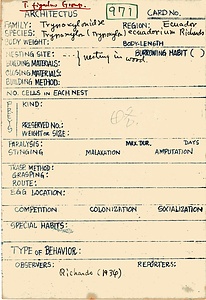 T. figulus Group.
ARCHITECTUS 977 CARD NO.
FAMILY: Trypoxylonidae REGION: Ecuador
SPECIES: Trypoxylon (Trypoxylon) ecuadorium Richards
BODY WEIGHT: BODY LENGTH
NESTING SITE: BURROWING HABIT ( )
BUILDING MATERIALS: nesting in wood.
CLOSING MATERIALS:
BUILDING METHOD:
NO. CELLS IN EACH NEST
PREYS KIND:
PRESERVED NO.:
WEIGHT OR SIZE:
PARALYSIS: MAX. DUR. DAYS
STINGING MALAXATION AMPUTATION
TRANSP. METHOD:
GRASPING:
ROUTE:
EGG LOCATION:
COMPETITION COLONIZATION SOCIALIZATION
SPECIAL HABITS:
TYPE OF BEHAVIOR:
OBSERVERS: REPORTERS:
Richards (1934)